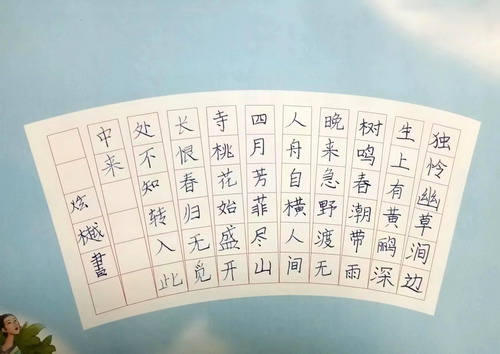 独怜幽草涧边
生上有黄鹂深
树鸣春潮带雨
晚来急野渡无
人舟自横人间
四月芳菲尽山
寺桃花始盛开
长恨春归无觅
处不知转入此
中来
炫樾書